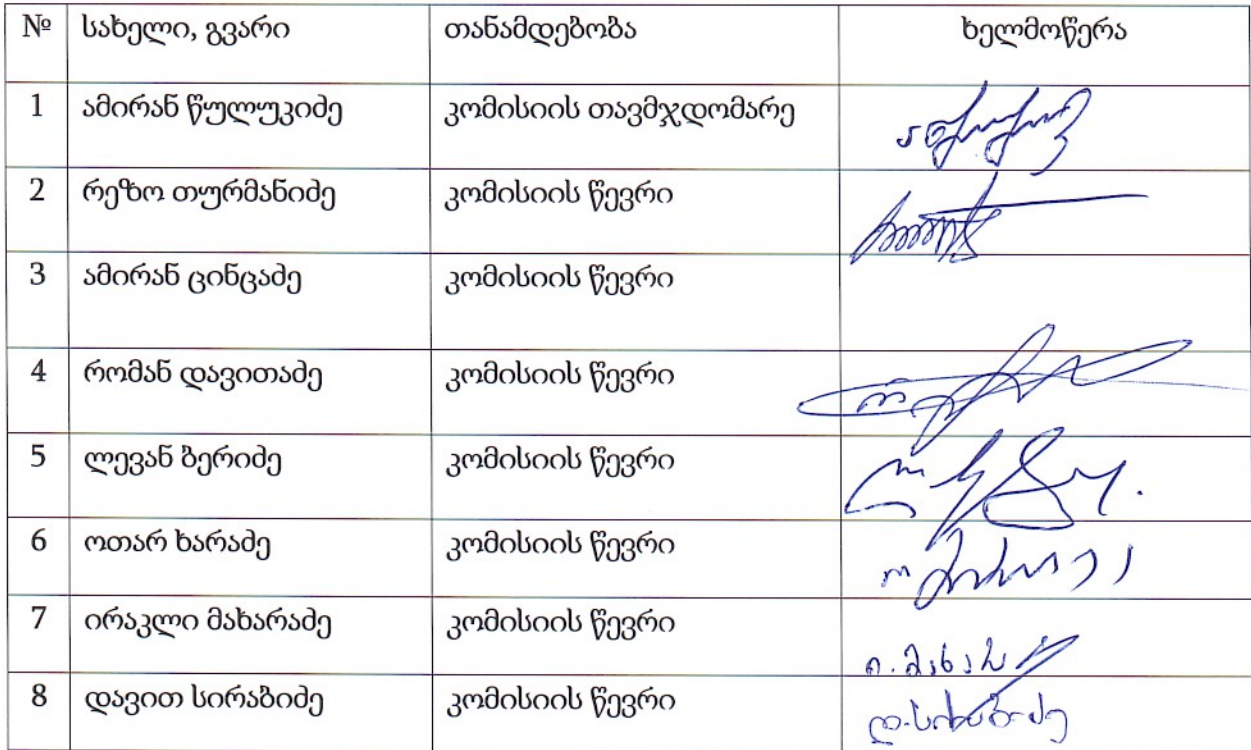 № სახელი, გვარი თანამდებობა ხელმოწერა
1 ამირან წულუკიძე კომისიის თავმჯდომარე
2 რეზო თურმანიძე კომისიის წევრი
3 ამირან ცინცაძე კომისიის წევრი
4 რომან დავითაძე კომისიის წევრი
5 ლევან ბერიძე კომისიის წევრი
6 ოთარ ხარაძე კომისიის წევრი
7 ირაკლი მახარაძე კომისიის წევრი
8 დავით სირაბიძე კომისიის წევრი დ. სირაბიძე